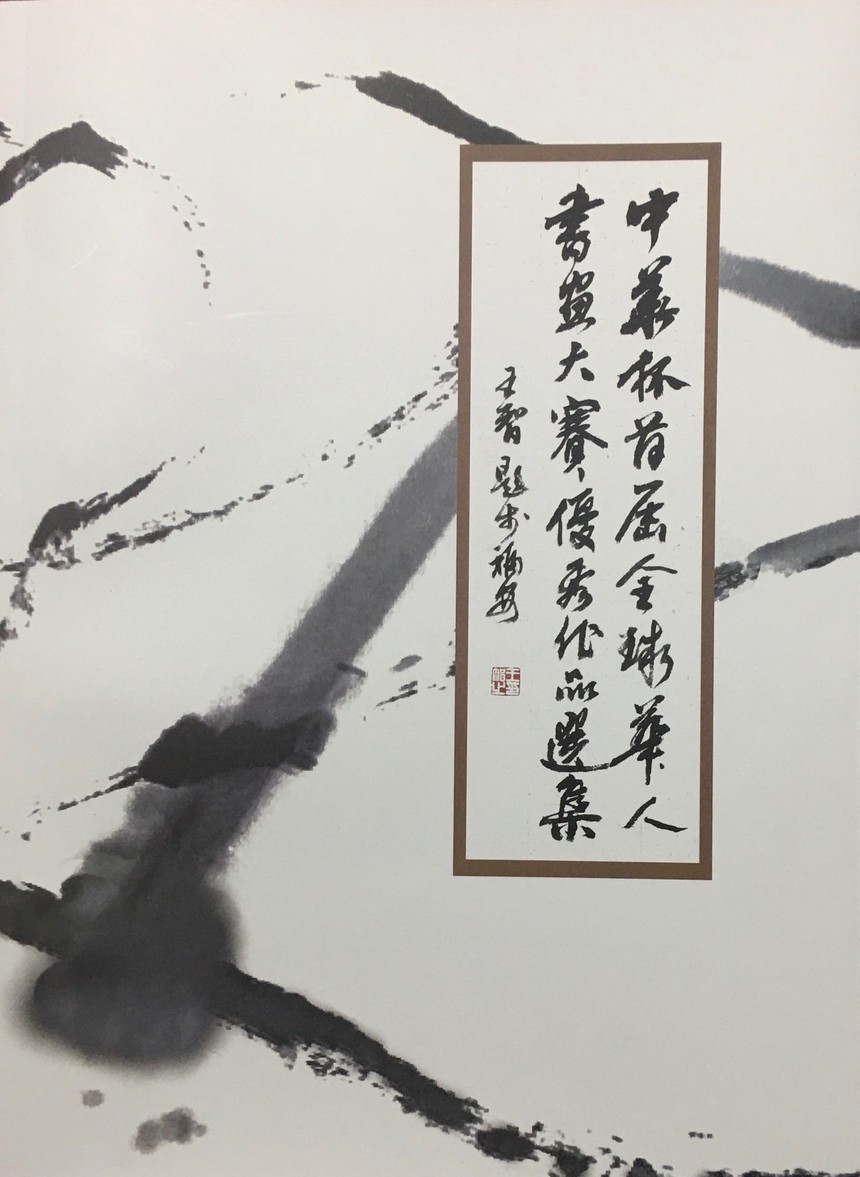 中華杯首届全球華人
書畫大賽優秀作品選集
王智題於福安